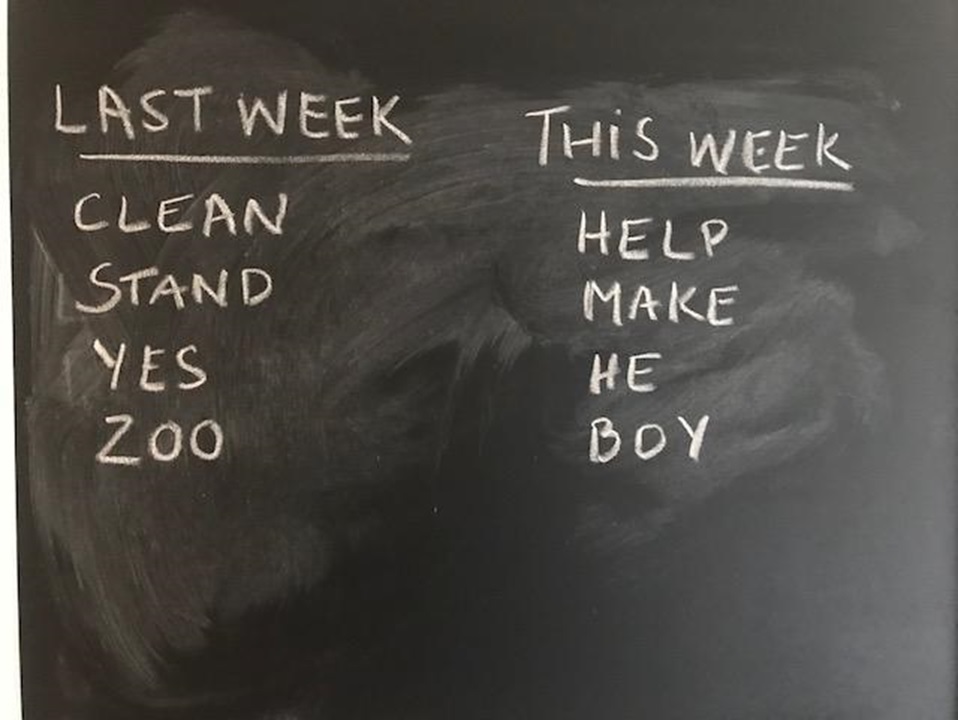 LAST WEEK
CLEAN
STAND
YES
ZOO
THiS WEEK
HELP
MAKE
HE
BOY